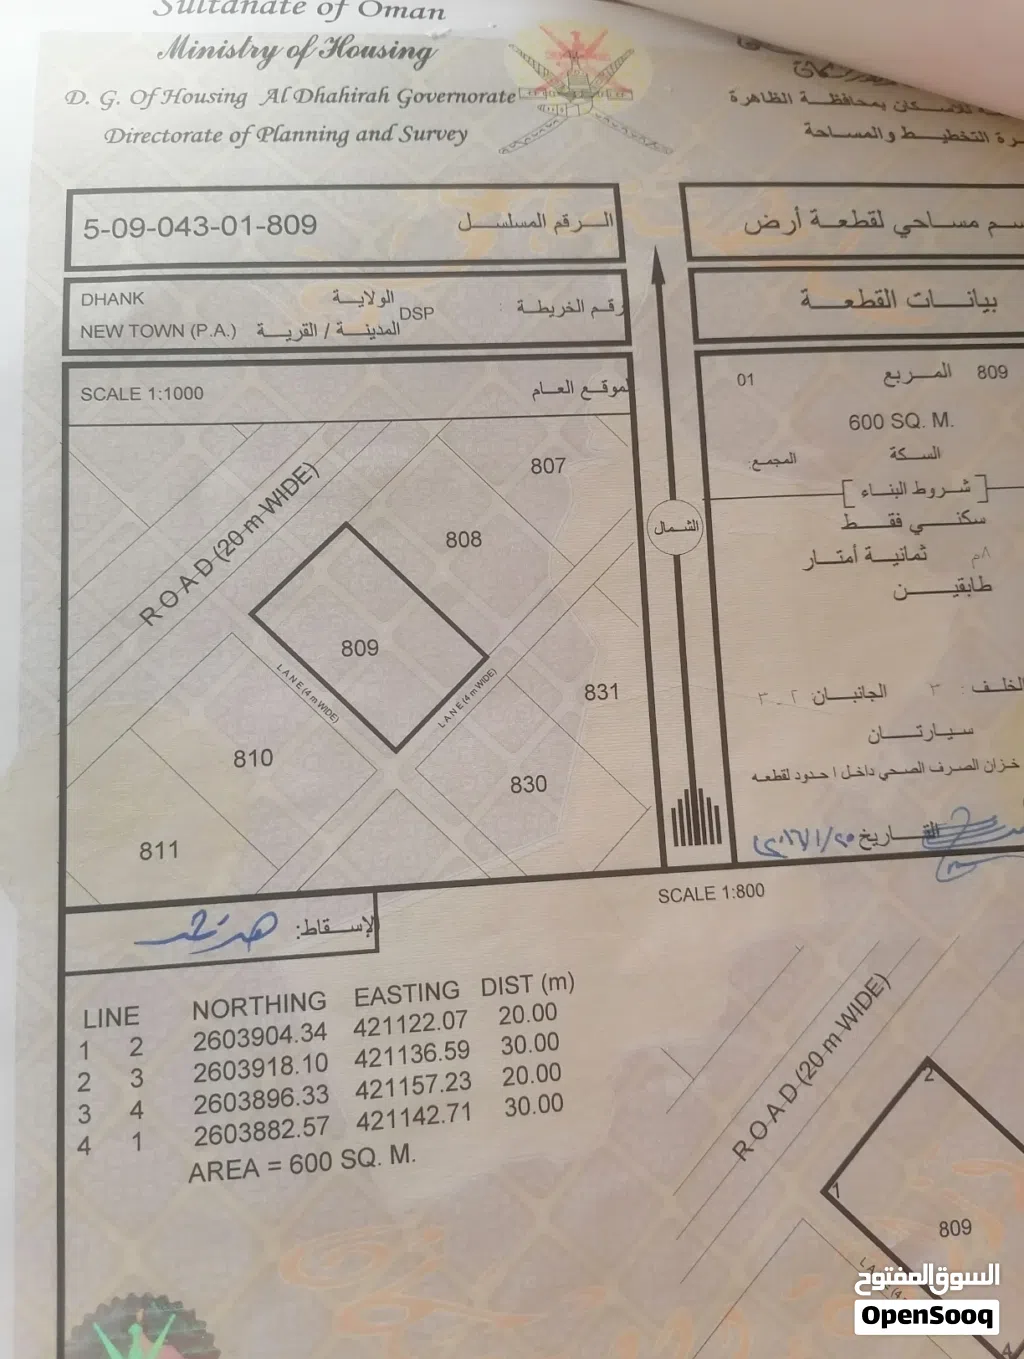 Sultanate of Oman
Ministry of Housing
D. G. Of Housing Al Dhahirah Governorate
للاسكان بمحافظة الظاهرة
Directorate of Planning and Survey
التخطيط والمساحة
5-09-043-01-809
الرقم المسلسل
مساحي لقطعة أرض
DHANK
الولاية
DSP
رقم الخريطة :
NEW TOWN (P.A.)
المدينة / القرية
بيانات القطعة
SCALE 1:1000
الموقع العام
01
المربع
809
600 SQ. M.
المجمع:
السكة
شروط البناء
سكني فقط
ثمانية أمتار
٨م
طابقين
الخلف : ٣
الجانبان ٢ - ٣
سيارتان
خزان الصرف الصحي داخل حدود لقطعه
التاريخ
الشمال
ROAD (20 m WIDE)
807
808
809
LANE (4 m WIDE)
LANE (4 m WIDE)
831
810
830
811
SCALE 1:800
الإسقاط:
LINE NORTHING EASTING DIST (m)
1 2 2603904.34 421122.07 20.00
2 3 2603918.10 421136.59 30.00
3 4 2603896.33 421157.23 20.00
4 1 2603882.57 421142.71 30.00
AREA = 600 SQ. M.
ROAD (20 m WIDE)
2
1
809
4
السوق المفتوح
OpenSooq